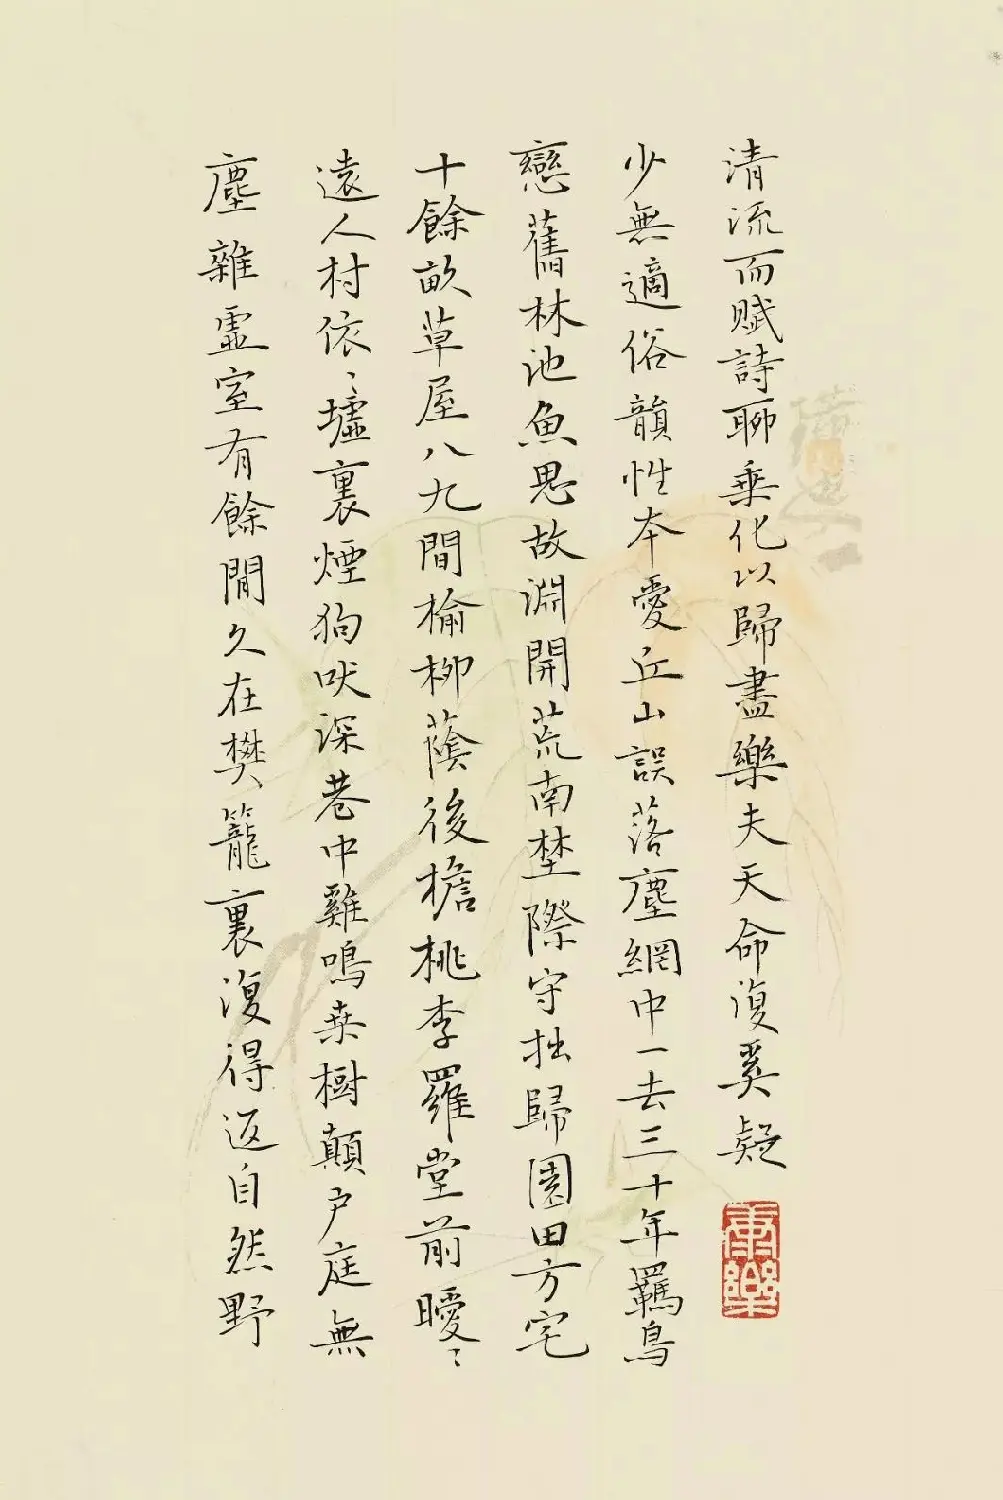 清流而赋詩聊乗化以歸盡樂夫天命復奚疑
少無適俗韻性本愛丘山誤落塵網中一去三十年羈鳥
戀舊林池魚思故淵開荒南埜際守拙歸園田方宅
十餘畝草屋八九間榆柳蔭後檐桃李羅堂前曖〻
遠人村依〻墟裏煙狗吠深巷中雞鳴桒樹顛户庭無
塵雜虚室有餘閒久在樊籠裏復得返自然野
康樂